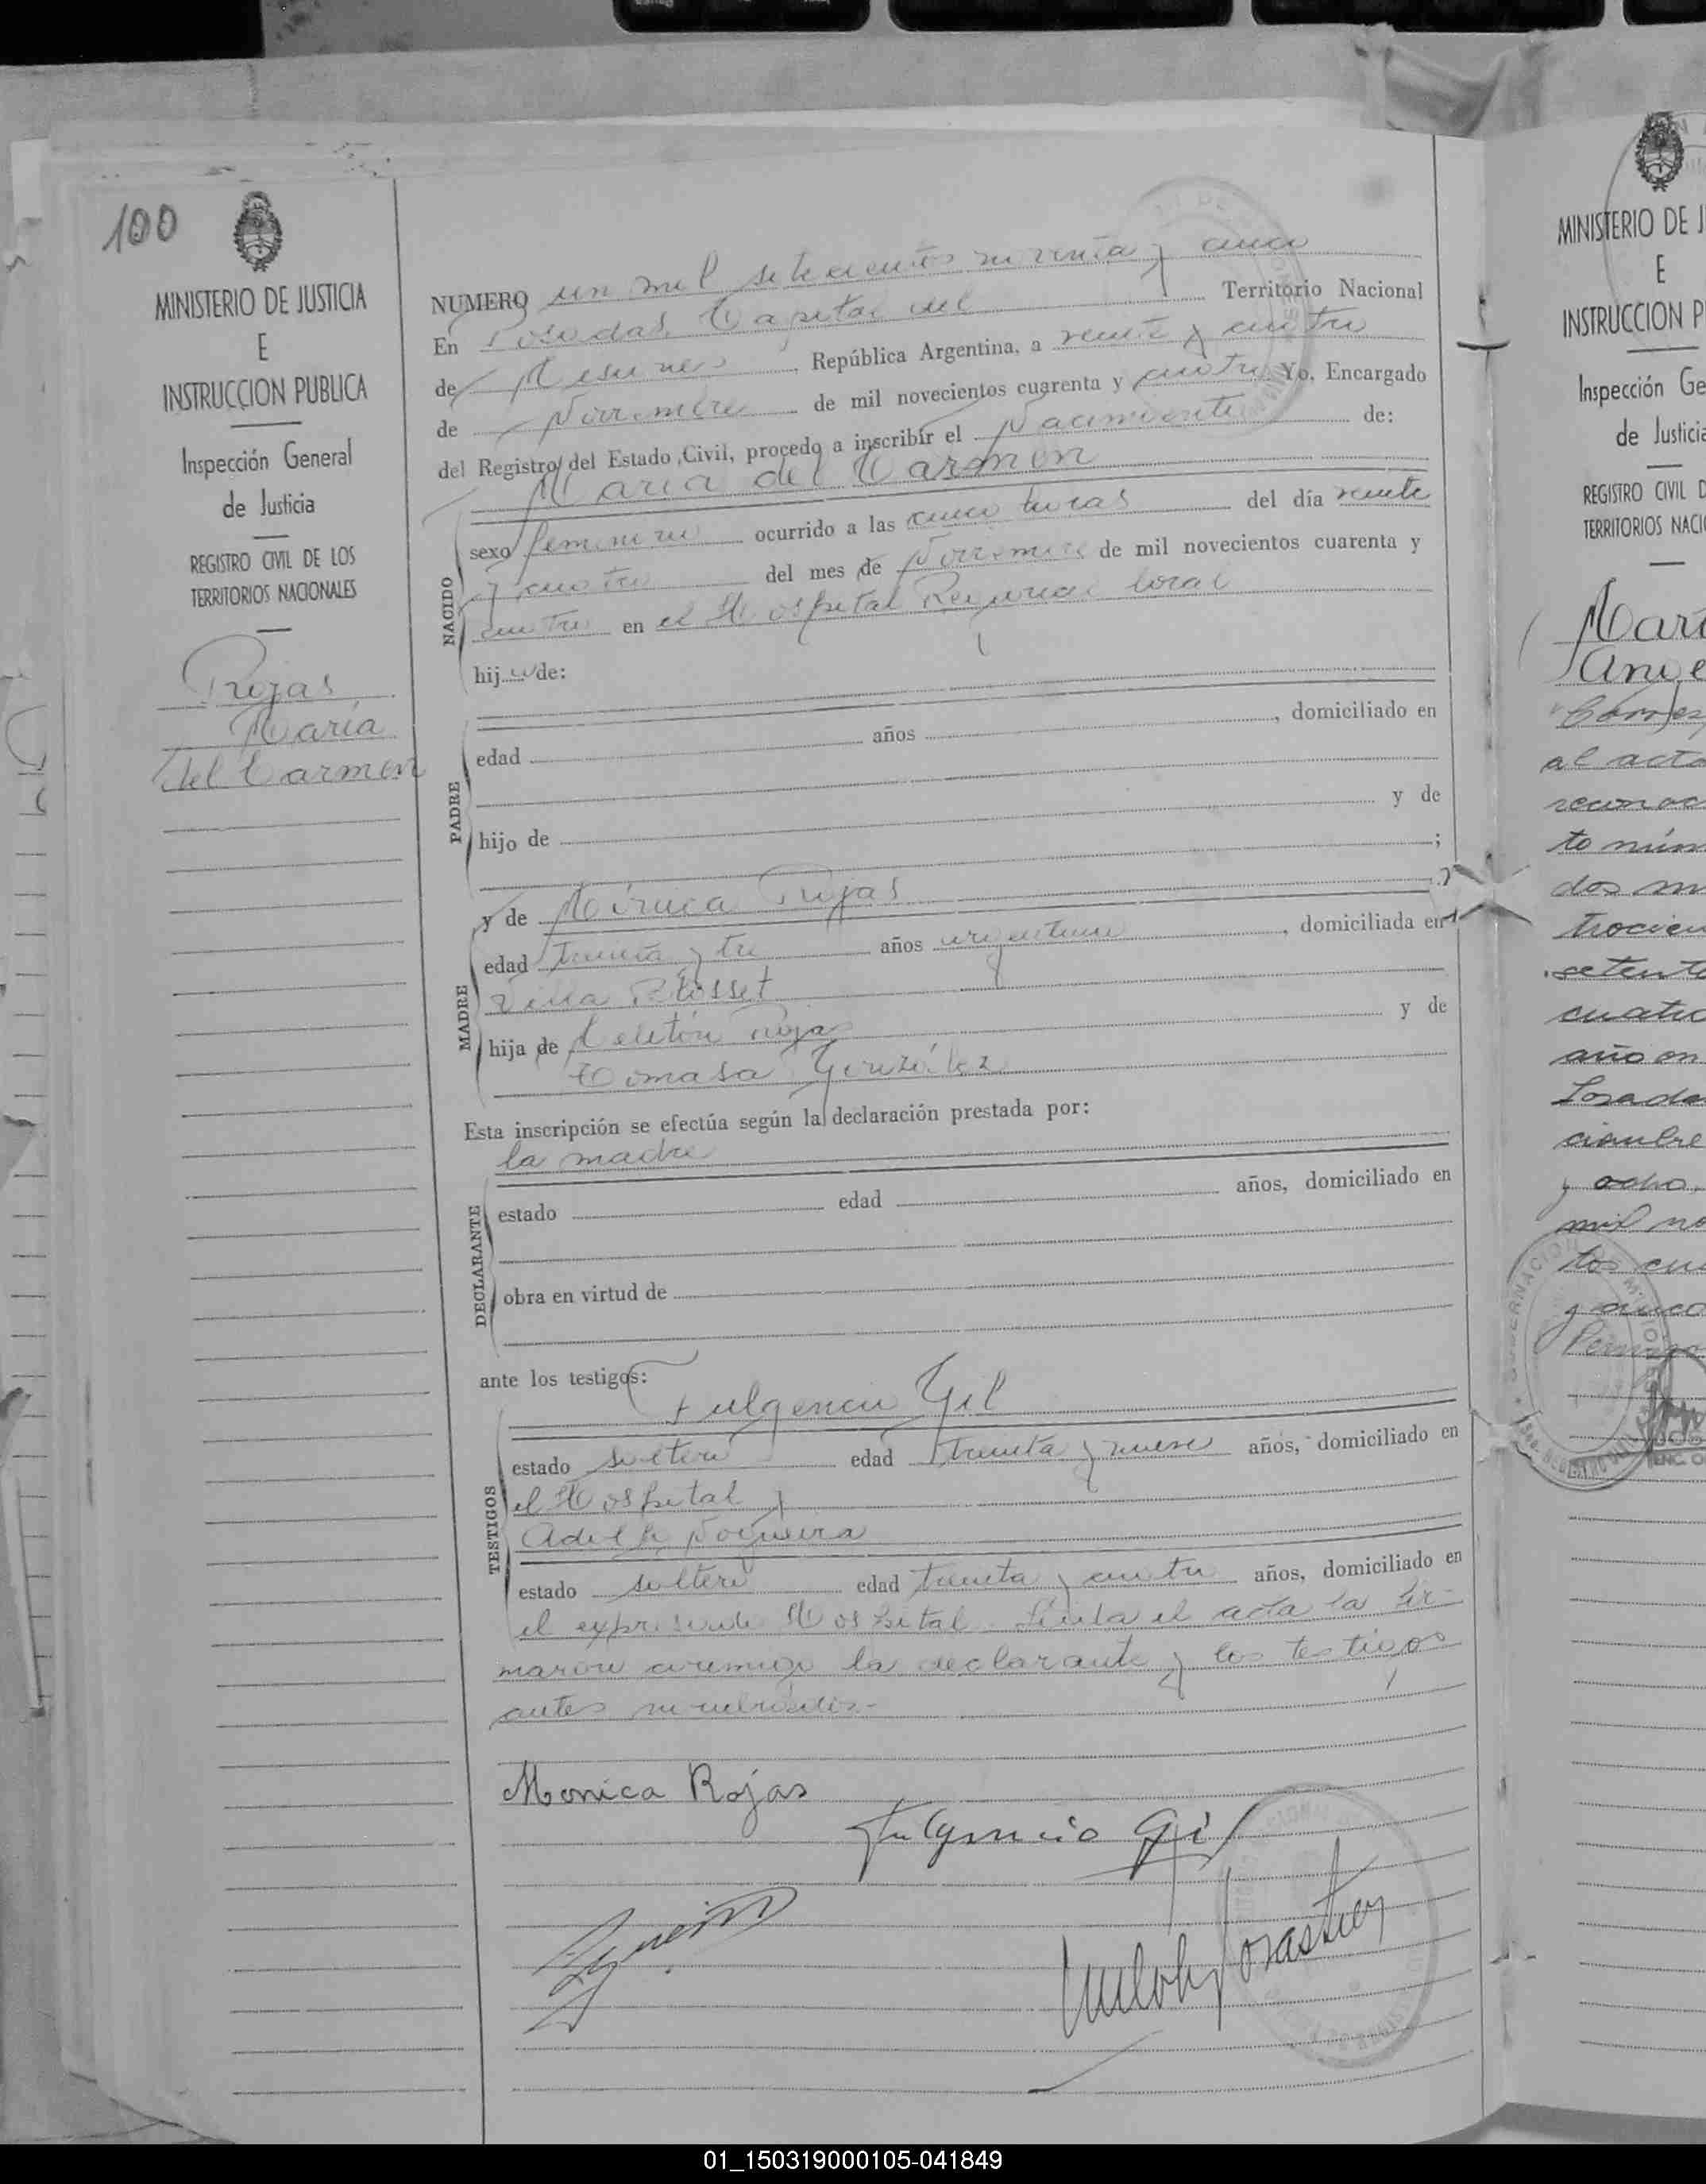 100
MINISTERIO DE JUSTICIA
E
INSTRUCCION PUBLICA
Inspección General
de Justicia
REGISTRO CIVIL DE LOS
TERRITORIOS NACIONALES
Rojas
María
del Carmen
NUMERO un mil setecientos noventa y cinco
En Posadas, Capital del Territorio Nacional
de Misiones, República Argentina, a veinte y cuatro
de Noviembre de mil novecientos cuarenta y cuatro Yo, Encargado
del Registro del Estado Civil, procedo a inscribir el Nacimiento de:
María del Carmen
NACIDO
sexo femenino ocurrido a las cinco horas del día veinte
y cuatro del mes de Noviembre de mil novecientos cuarenta y
cuatro en el Hospital Regional local
hij a de:
PADRE
edad años , domiciliado en
hijo de y de
;
MADRE
y de Mónica Rojas
edad treinta y tres años argentina, domiciliada en
Villa Blosset
hija de Celetón Rojas y de
Tomasa González
Esta inscripción se efectúa según la declaración prestada por:
la madre
DECLARANTE
estado edad años, domiciliado en
obra en virtud de
ante los testigos:
Fulgencio Gil
TESTIGOS
estado soltero edad treinta y nueve años, domiciliado en
el Hospital y
Noguera
estado soltero edad treinta y cuatro años, domiciliado en
el expresado Hospital. Leída el acta la fir-
maron conmigo la declarante y los testigos
antes nombrados.-
Monica Rojas
Fulgencio Gil
MINISTERIO DE J
E
INSTRUCCION P
Inspección Ge
de Justicia
REGISTRO CIVIL D
TERRITORIOS NACI
Marí
al acta
reconoc
to núm
dos m
trocien
setenta
cuatro
año en
Posada
ciembre
y ocho
mil no
tos cua
y cinco
01_150319000105-041849